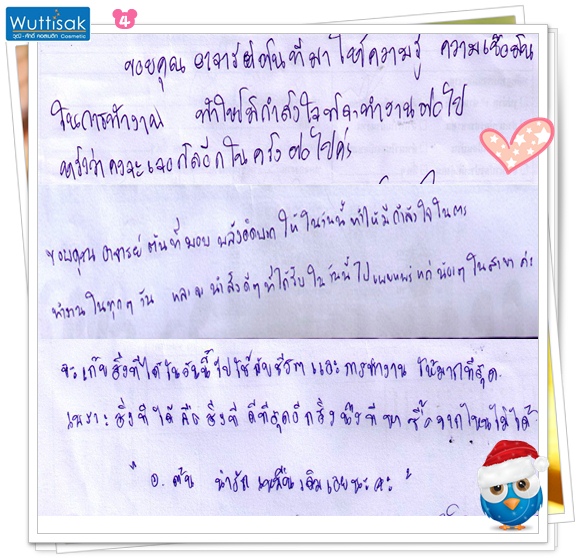 Wuttisak
วุฒิ-ศักดิ์ คอสเมติก Cosmetic
4
ขอบคุณ อาจารย์ต้นที่มาให้ความรู้ ความเชื่อมั่น
ในการทำงาน ทำให้มีกำลังใจที่จะทำงานต่อไป
หวังว่าคงจะเจอกันอีกในครั้งต่อไปค่ะ
ขอบคุณ อาจารย์ ต้นที่มอบ พลังอันมาก ให้ในวันนี้ ทำให้มีกำลังใจในการ
ทำงานในทุกๆ วัน และจะนำสิ่งดีๆ ที่ได้รับในวันนี้ไปเผยแพร่แก่น้องๆ ในสาขา ค่ะ
จะเก็บสิ่งที่ได้ในวันนี้ไปใช้กับชีวิต และ การทำงาน ให้มากที่สุด
เพราะ สิ่งที่ได้ คือ สิ่งที่ ดีที่สุดอีกสิ่งนึงที่หาซื้อจากไหนไม่ได้
" อ. ต้น น่ารัก เหมือนเดิมเลยนะคะ "